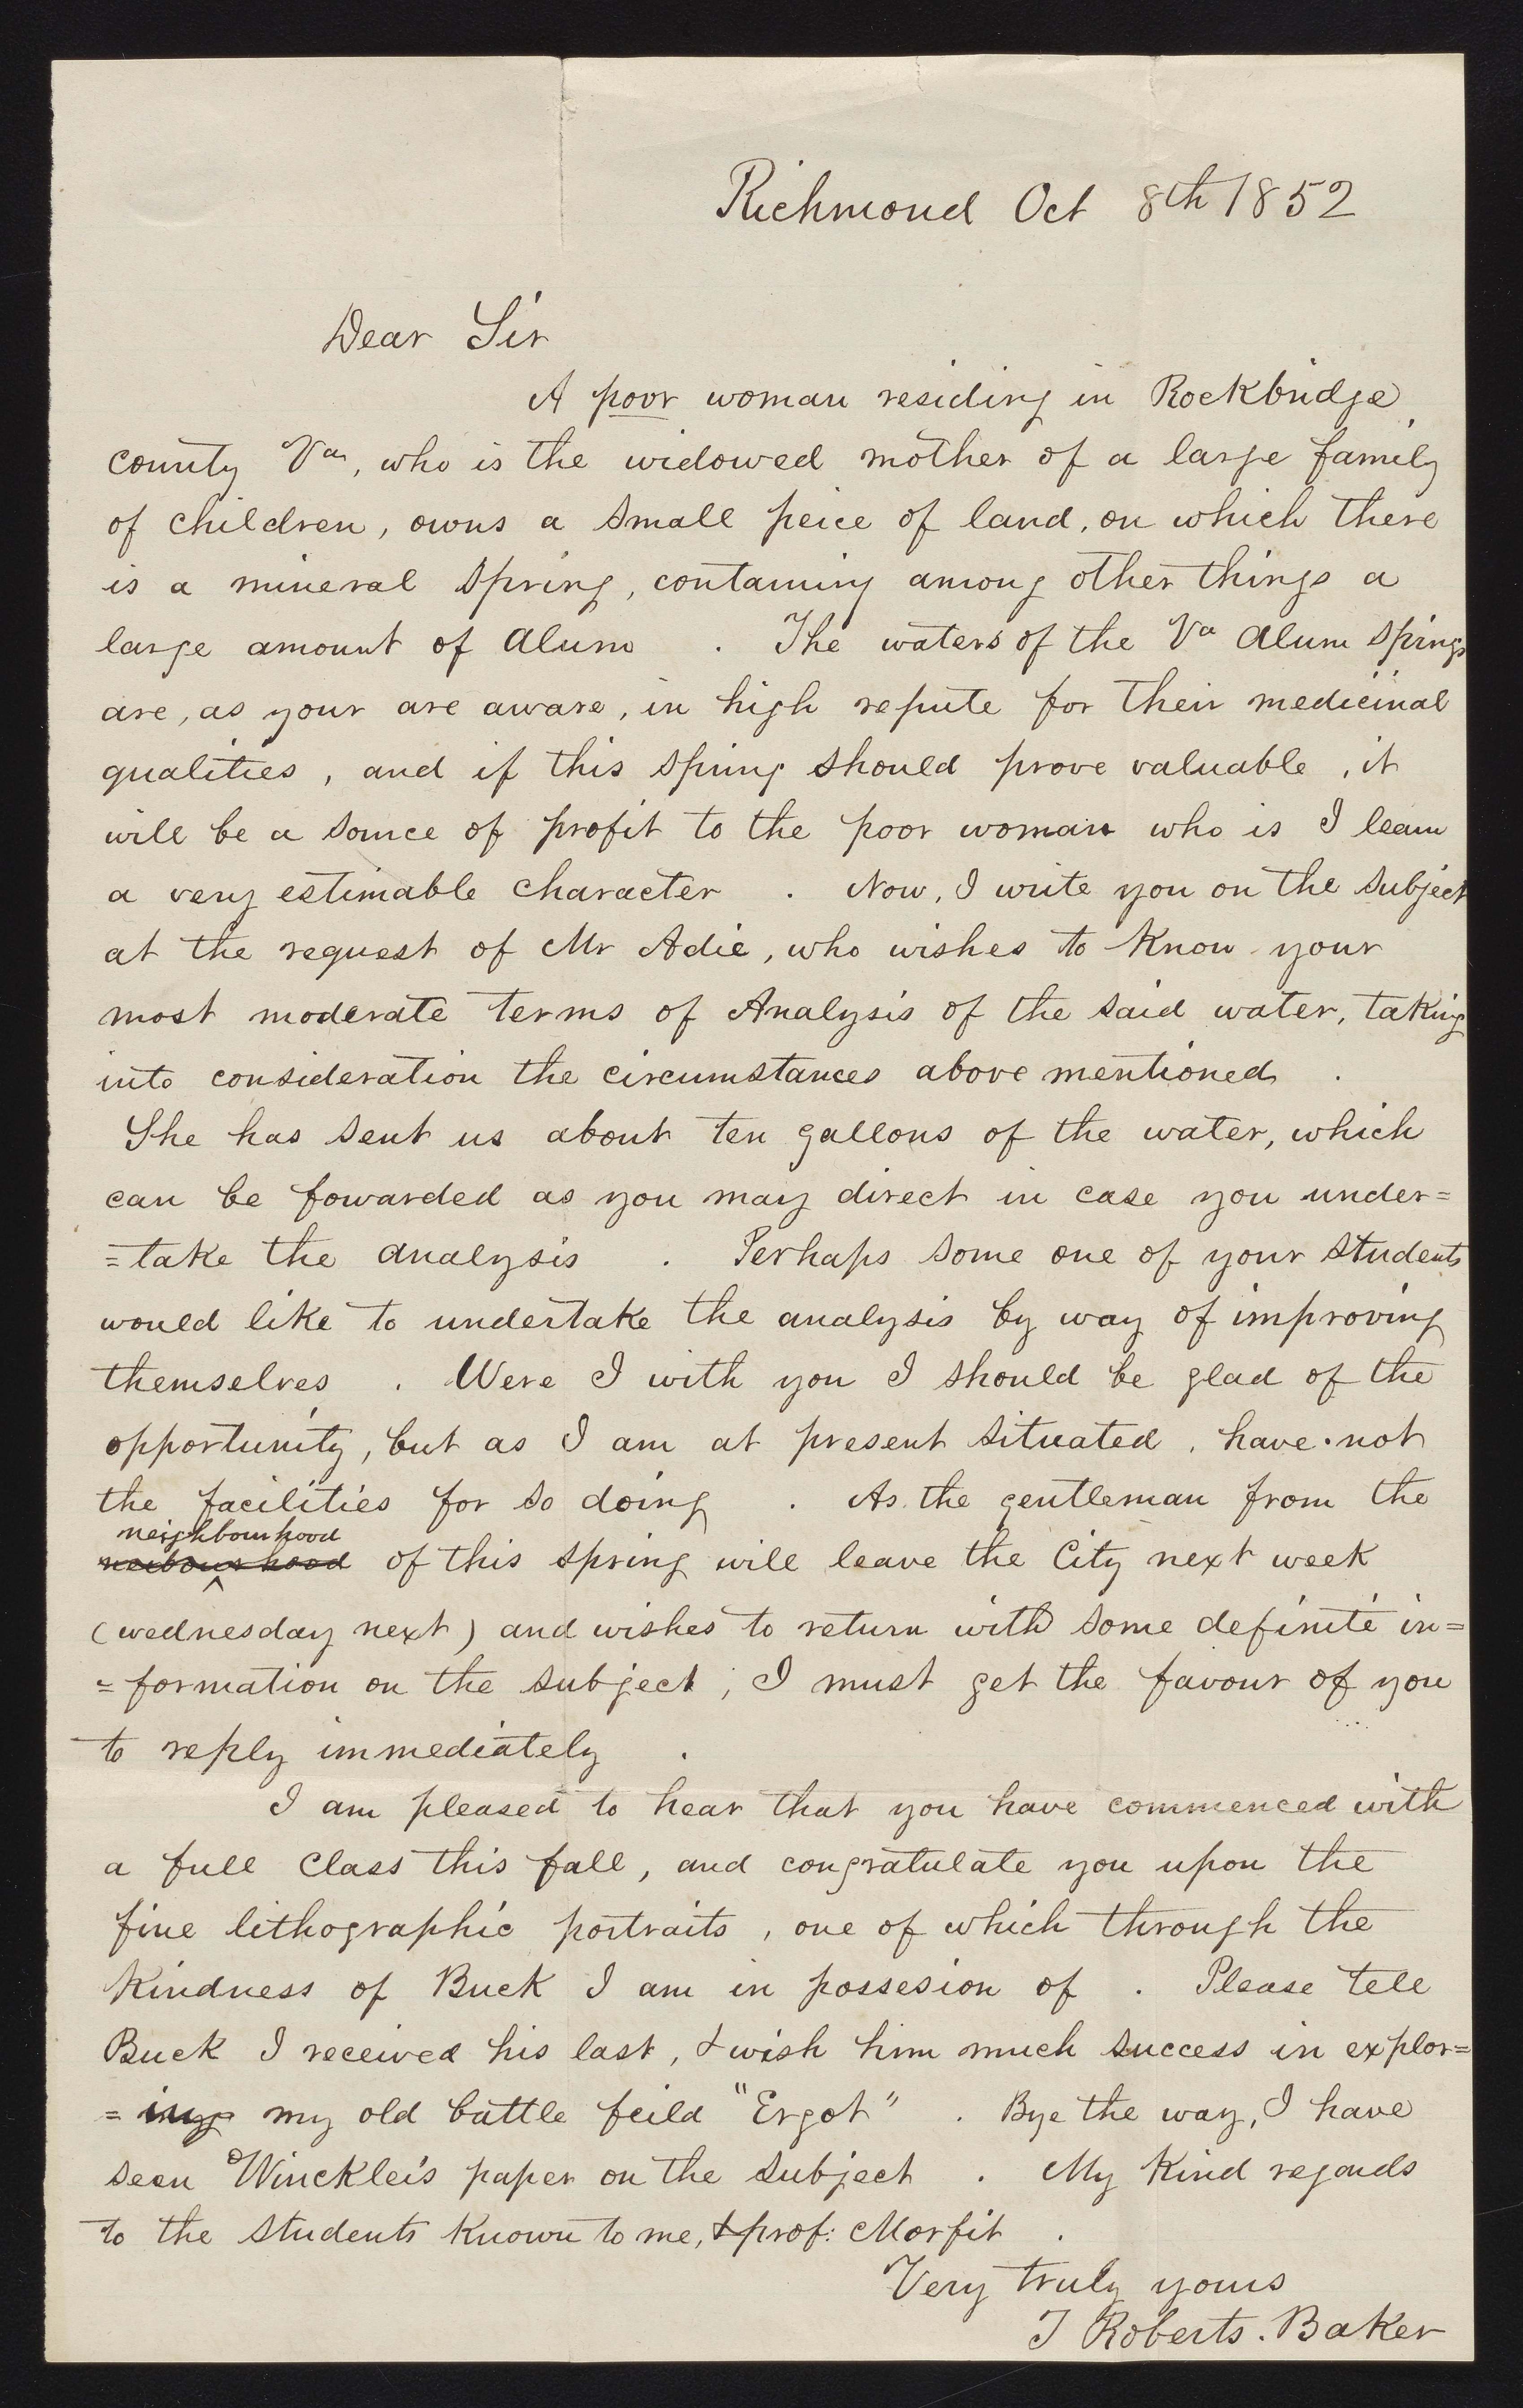 Richmond Oct 8th 1852
Dear Sir
A poor woman residing in Rockbridge
county Va, who is the widowed mother of a large family
of children, owns a small peice of land, on which there
is a mineral spring, containing among other things a
large amount of Alum . The waters of the Va Alum Springs
are, as your are aware, in high repute for their medicinal
qualities, and if this spring should prove valuable, it
will be a source of profit to the poor woman who is I learn
a very estimable character . Now, I write you on the subject
at the request of Mr Adie, who wishes to know your
most moderate terms of Analysis of the said water, taking
into consideration the circumstances above mentioned .
She has sent us about ten gallons of the water, which
can be fowarded as you may direct in case you under=
=take the analysis . Perhaps some one of your students
would like to undertake the analysis by way of improving
themselves . Were I with you I should be glad of the
opportunity, but as I am at present situated, have not
the facilities for so doing . As the gentleman from the
neighbourhood
neibourhood of this spring will leave the City next week
(wednesday next) and wishes to return with some definite in=
=formation on the subject; I must get the favour of you
to reply immediately .
I am pleased to hear that you have commenced with
a full Class this fall, and congratulate you upon the
fine lithographic portraits, one of which through the
kindness of Buck I am in possesion of . Please tell
Buck I received his last, & wish him much success in explor=
=ing my old battle feild "Ergot" . Bye the way, I have
seen Winckler's paper on the subject . My kind regards
to the students known to me, & prof: Morfit .
Very truly yours
T Roberts. Baker